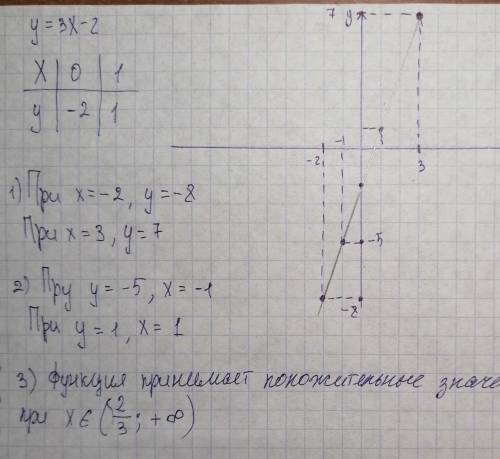 y = 3x-2
x | 0 | 1
y | -2 | 1
1) При x = -2, y = -8
При x = 3, y = 7
2) Пру y = -5, x = -1
При y = 1, x = 1
3) Функция принимает положительные значе
при x ∈ (2/3; +∞)
7 y
-1
-2
3
-5
-8